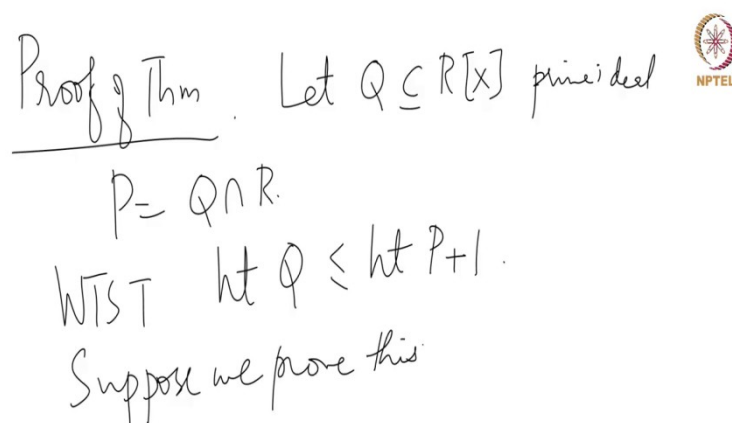 Proof of Thm. Let Q ⊆ R[X] prime ideal
NPTEL
P = Q ∩ R.
WTST ht Q ≤ ht P+1.
Suppose we prove this